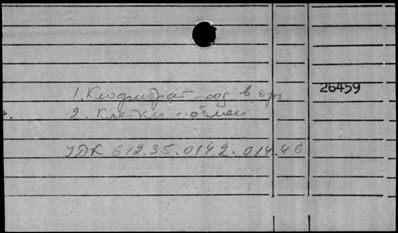 1. Клофибрат - сод в орг
26459
2. Клетки - обмен
УДК 612.35.0192.014.46